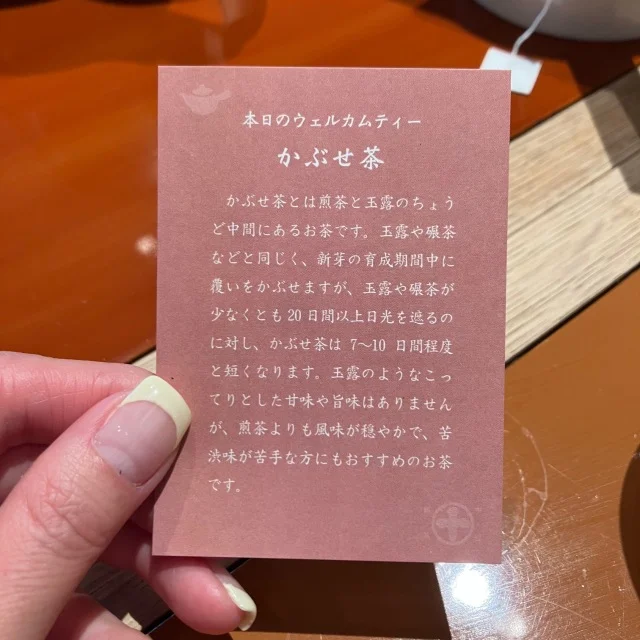 本日のウェルカムティー
かぶせ茶
かぶせ茶とは煎茶と玉露のちょう
ど中間にあるお茶です。玉露や碾茶
などと同じく、新芽の育成期間中に
覆いをかぶせますが、玉露や碾茶が
少なくとも20日間以上日光を遮るの
に対し、かぶせ茶は 7〜10 日間程度
と短くなります。玉露のようなこっ
てりとした甘味や旨味はありません
が、煎茶よりも風味が穏やかで、苦
渋味が苦手な方にもおすすめのお茶
です。